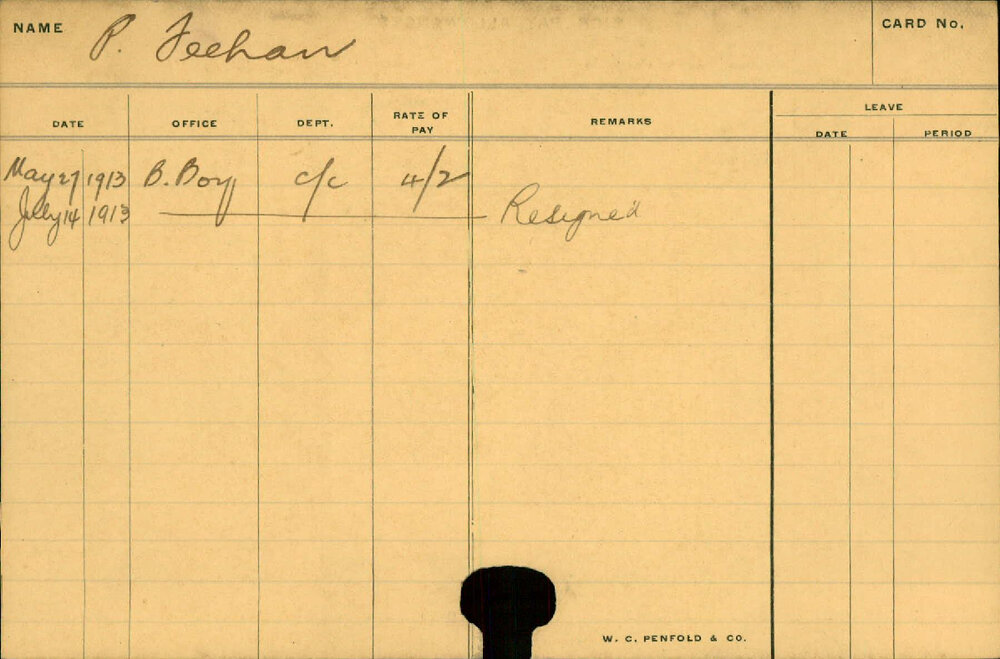 NAME P. Feehan CARD No.
DATE OFFICE DEPT. RATE OF PAY REMARKS LEAVE
DATE PERIOD
May 27 1913 B. Boy c/c 4/2
July 14 1913 Resigned
W. C. PENFOLD & CO.